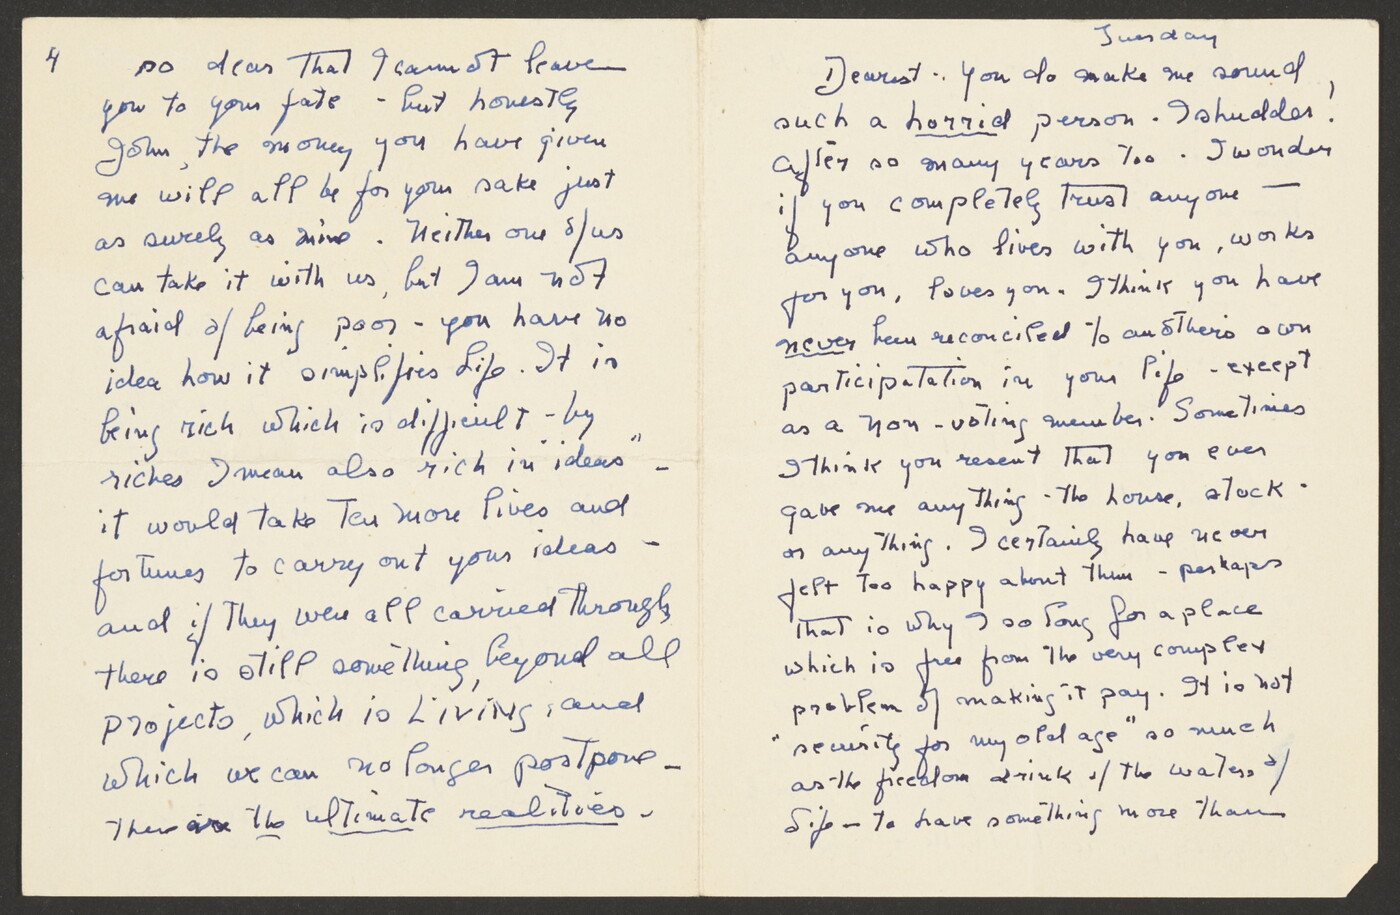 4
so dear that I cannot leave
you to your fate - but honestly
John, the money you have given
me will all be for your sake just
as surely as mine. Neither one of us
can take it with us, but I am not
afraid of being poor - you have no
idea how it simplifies life. It is
being rich which is difficult - by
riches I mean also rich in "ideas" -
it would take ten more lives and
fortunes to carry out your ideas -
and if they were all carried through
there is still something, beyond all
projects, which is LiViNg, and
which we can no longer postpone -
These are the ultimate realities.
Tuesday
Dearest - you do make me sound
such a horrid person. I shudder!
After so many years too. I wonder
if you completely trust anyone —
anyone who lives with you, works
for you, loves you. I think you have
never been reconciled to another's own
participatation in your life - except
as a non-voting member. Sometimes
I think you resent that you ever
gave me anything - the house, stock -
or anything. I certainly have never
felt too happy about them - perhaps
that is why I so long for a place
which is free from the very complex
problem of making it pay. It is not
"security for my old age" so much
as the freedom drink of the waters of
life - to have something more than